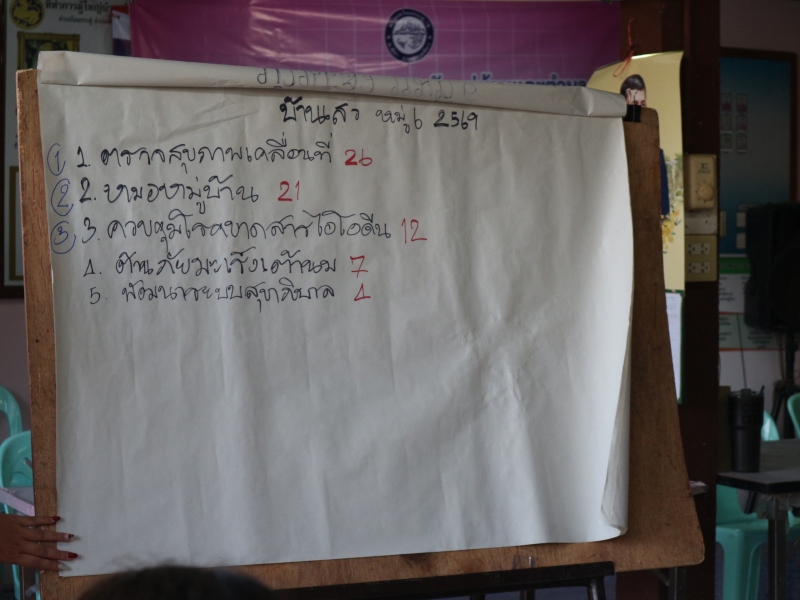 ที่ทำการผู้ใหญ่บ้าน
บ้านเสว หมู่ 6 2569
1 1. ตรวจสุขภาพเคลื่อนที่ 26
2 2. หมอหมู่บ้าน 21
3 3. ควบคุมโรคขาดสารไอโอดีน 12
4. ต้านภัยมะเร็งเต้านม 7
5. พัฒนาระบบสุขาภิบาล 4